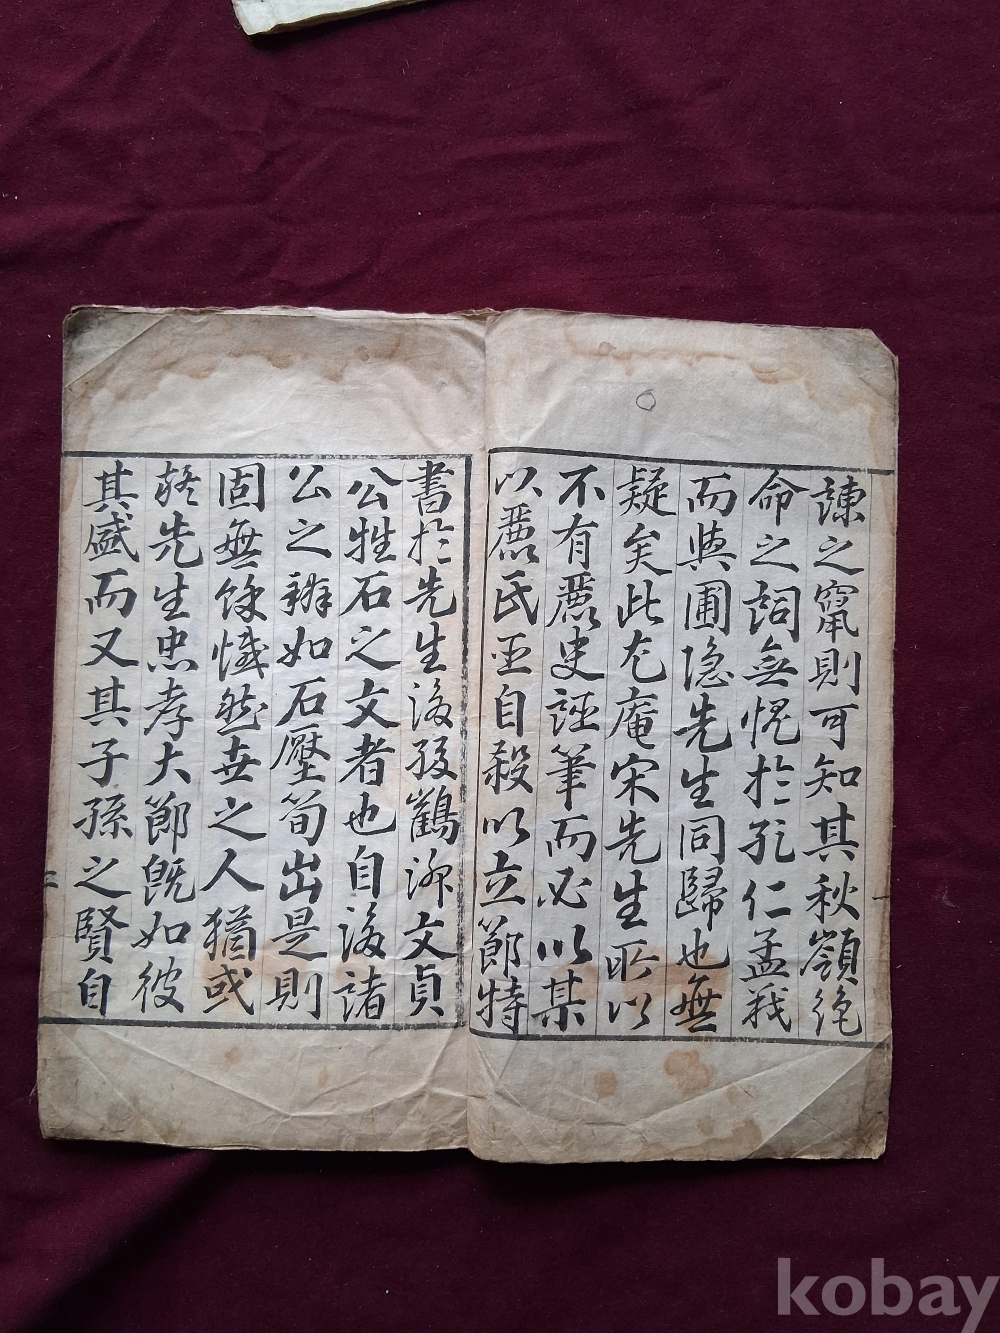 諫之竄則可知其秋嶺絶
命之詞無愧於孔仁孟我
而與圃隐先生同歸也無
疑矣此尤庵宋先生所以
不有麗史誣筆而必以某
以麗氏臣自殺以立節特
書於先生後孫鶴洲文貞
公牲石之文者也自後諸
公之辨如石壓筍出是則
固無餘憾然世之人猶或
先生忠孝大節旣如彼
其盛而又其子孫之賢自
二
kobay